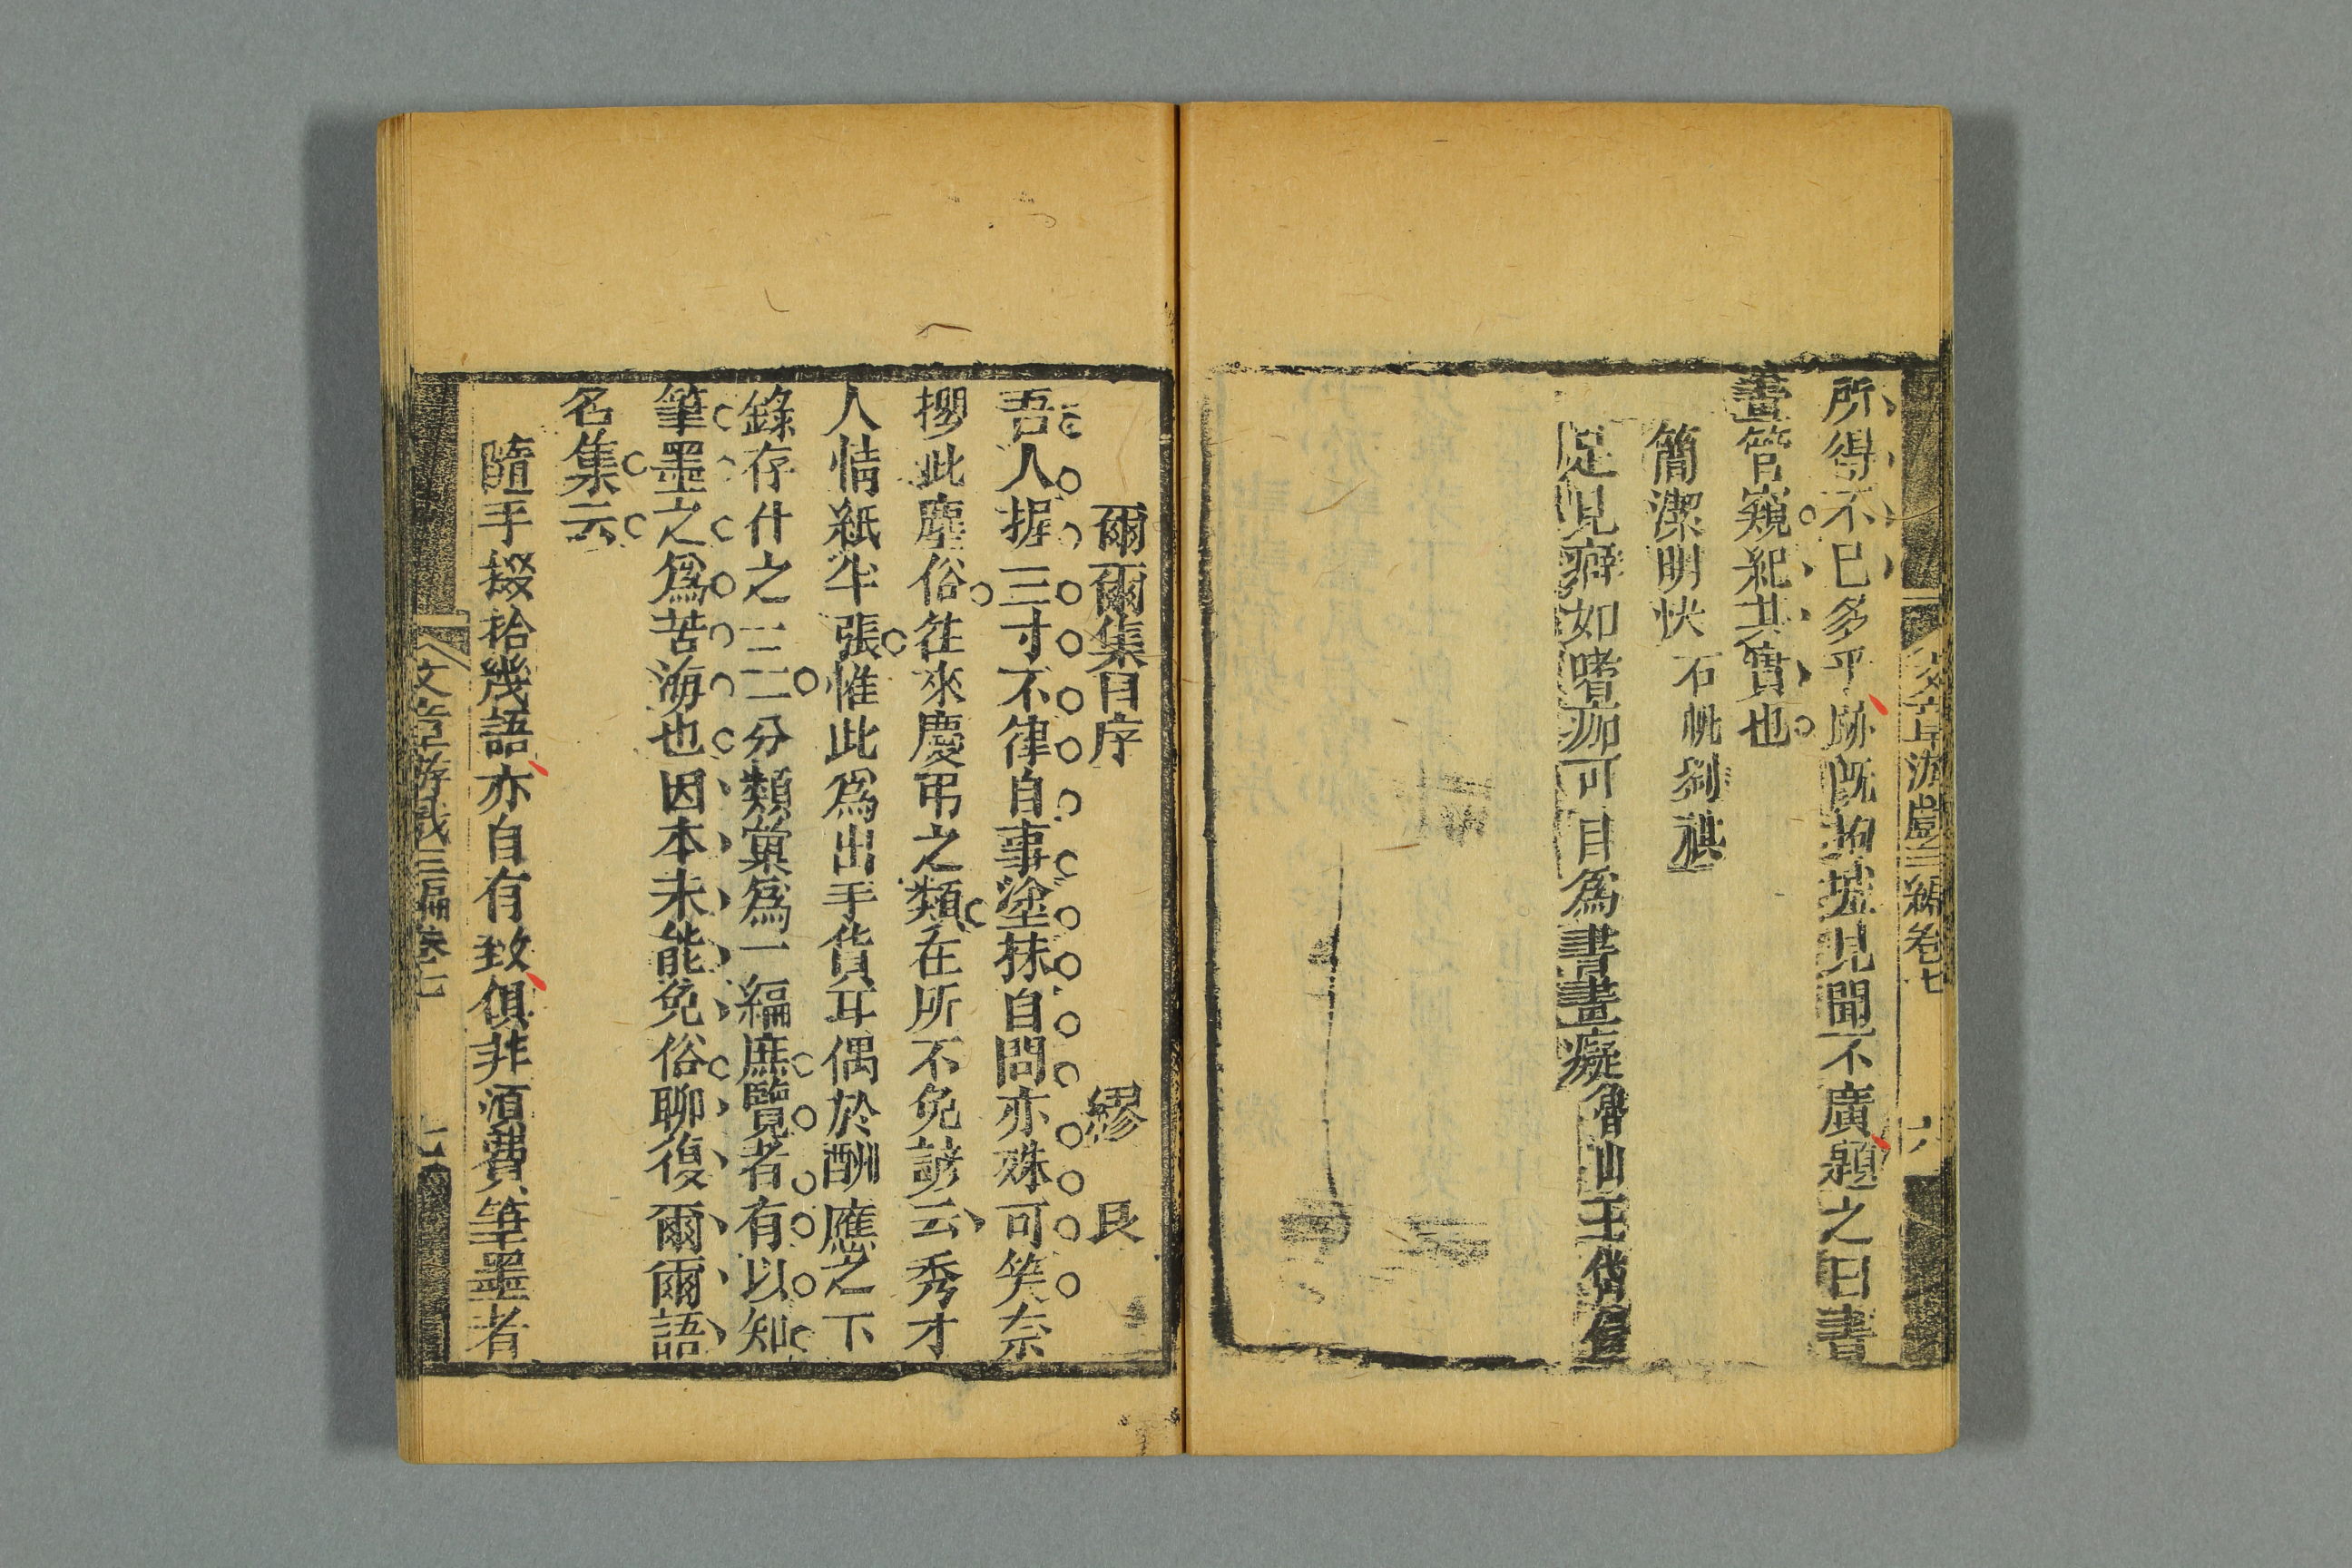 文章游戲三編卷七 六
所得不已多乎跡旣拘墟見聞不廣題之曰書
畫管窺紀其實也
簡潔明快 石帆劉祺
足見癖如嗜痂可目爲書畫癡 山王
爾爾集自序 繆艮
吾人握三寸不律自事塗抹自問亦殊可笑奈
攖此塵俗徃來慶弔之類在所不免諺云秀才
人情紙半張惟此爲出手貨耳偶於酬應之下
錄存什之一二分類彙爲一編庶覽者有以知
筆墨之爲苦海也因本未能免俗聊復爾爾語
名集云
隨手掇拾幾語亦自有致俱非須費筆墨者
文章游戲三編卷七 七